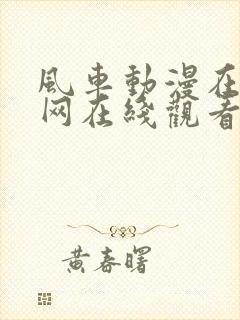 風車動漫在
网在綫觀看
黄春曙